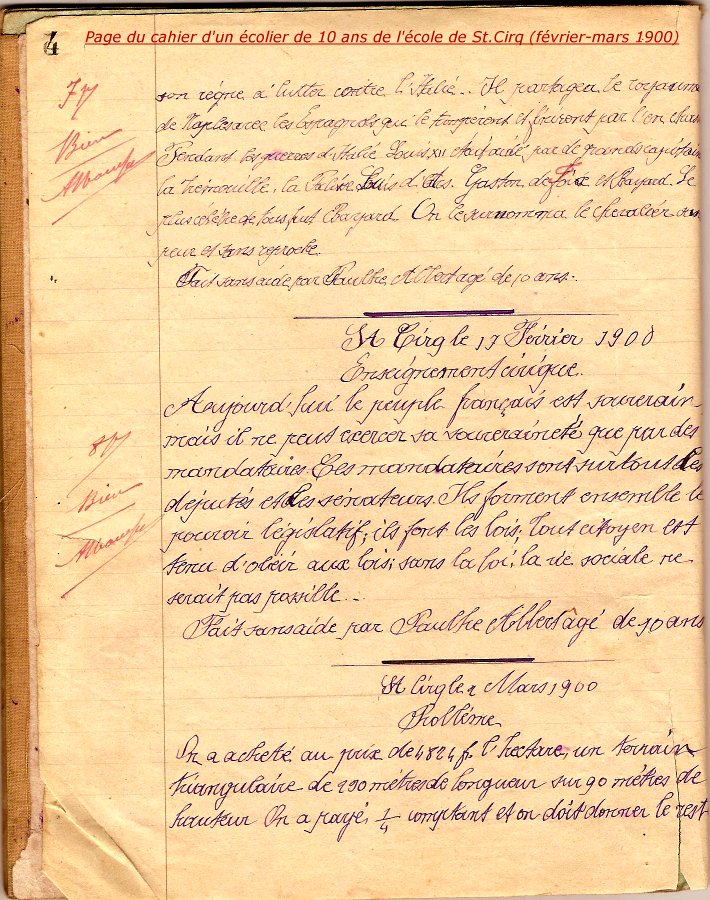 4
Page du cahier d'un écolier de 10 ans de l'école de St.Cirq (février-mars 1900)
son règne à lutter contre l'Italie.. Il partagea le royaume
de Naples avec les Espagnols qui le trompèrent il furent par l'en chass
Pendant les guerres d'Italie Louis XII était aidé par de grands capitain
la Trémouille, la Palice Louis d'Ars. Gaston de foix et Bayard. Le
plus célèbre de tous fut Bayard. On le surnomma le chevalier sans
peur et sans reproche.
Fait sans aide par Paulhe Albert agé de 10 ans.
Bien
St Cirq le 17 Février 1900
Enseignement civique.
Aujourd'hui le peuple français est souverain
mais il ne peut exercer sa souveraineté que par des
mandataires. Ces mandataires sont surtous les
députés et les sénateurs. Ils forment ensemble le
pouvoir législatif; ils font les lois. Tout citoyen est
tenu d'obéir aux lois; sans la loi, la vie sociale ne
serait pas possible..
Fait sans aide par Paulhe Albert âgé de 10 ans
Bien
St Cirq le 2 Mars 1900
Problème
On a acheté au prix de 4824 f. l'hectare, un terrain
triangulaire de 290 mètres de longueur sur 90 mètres de
hauteur On a payé 1/4 comptant et on doit donner le rest